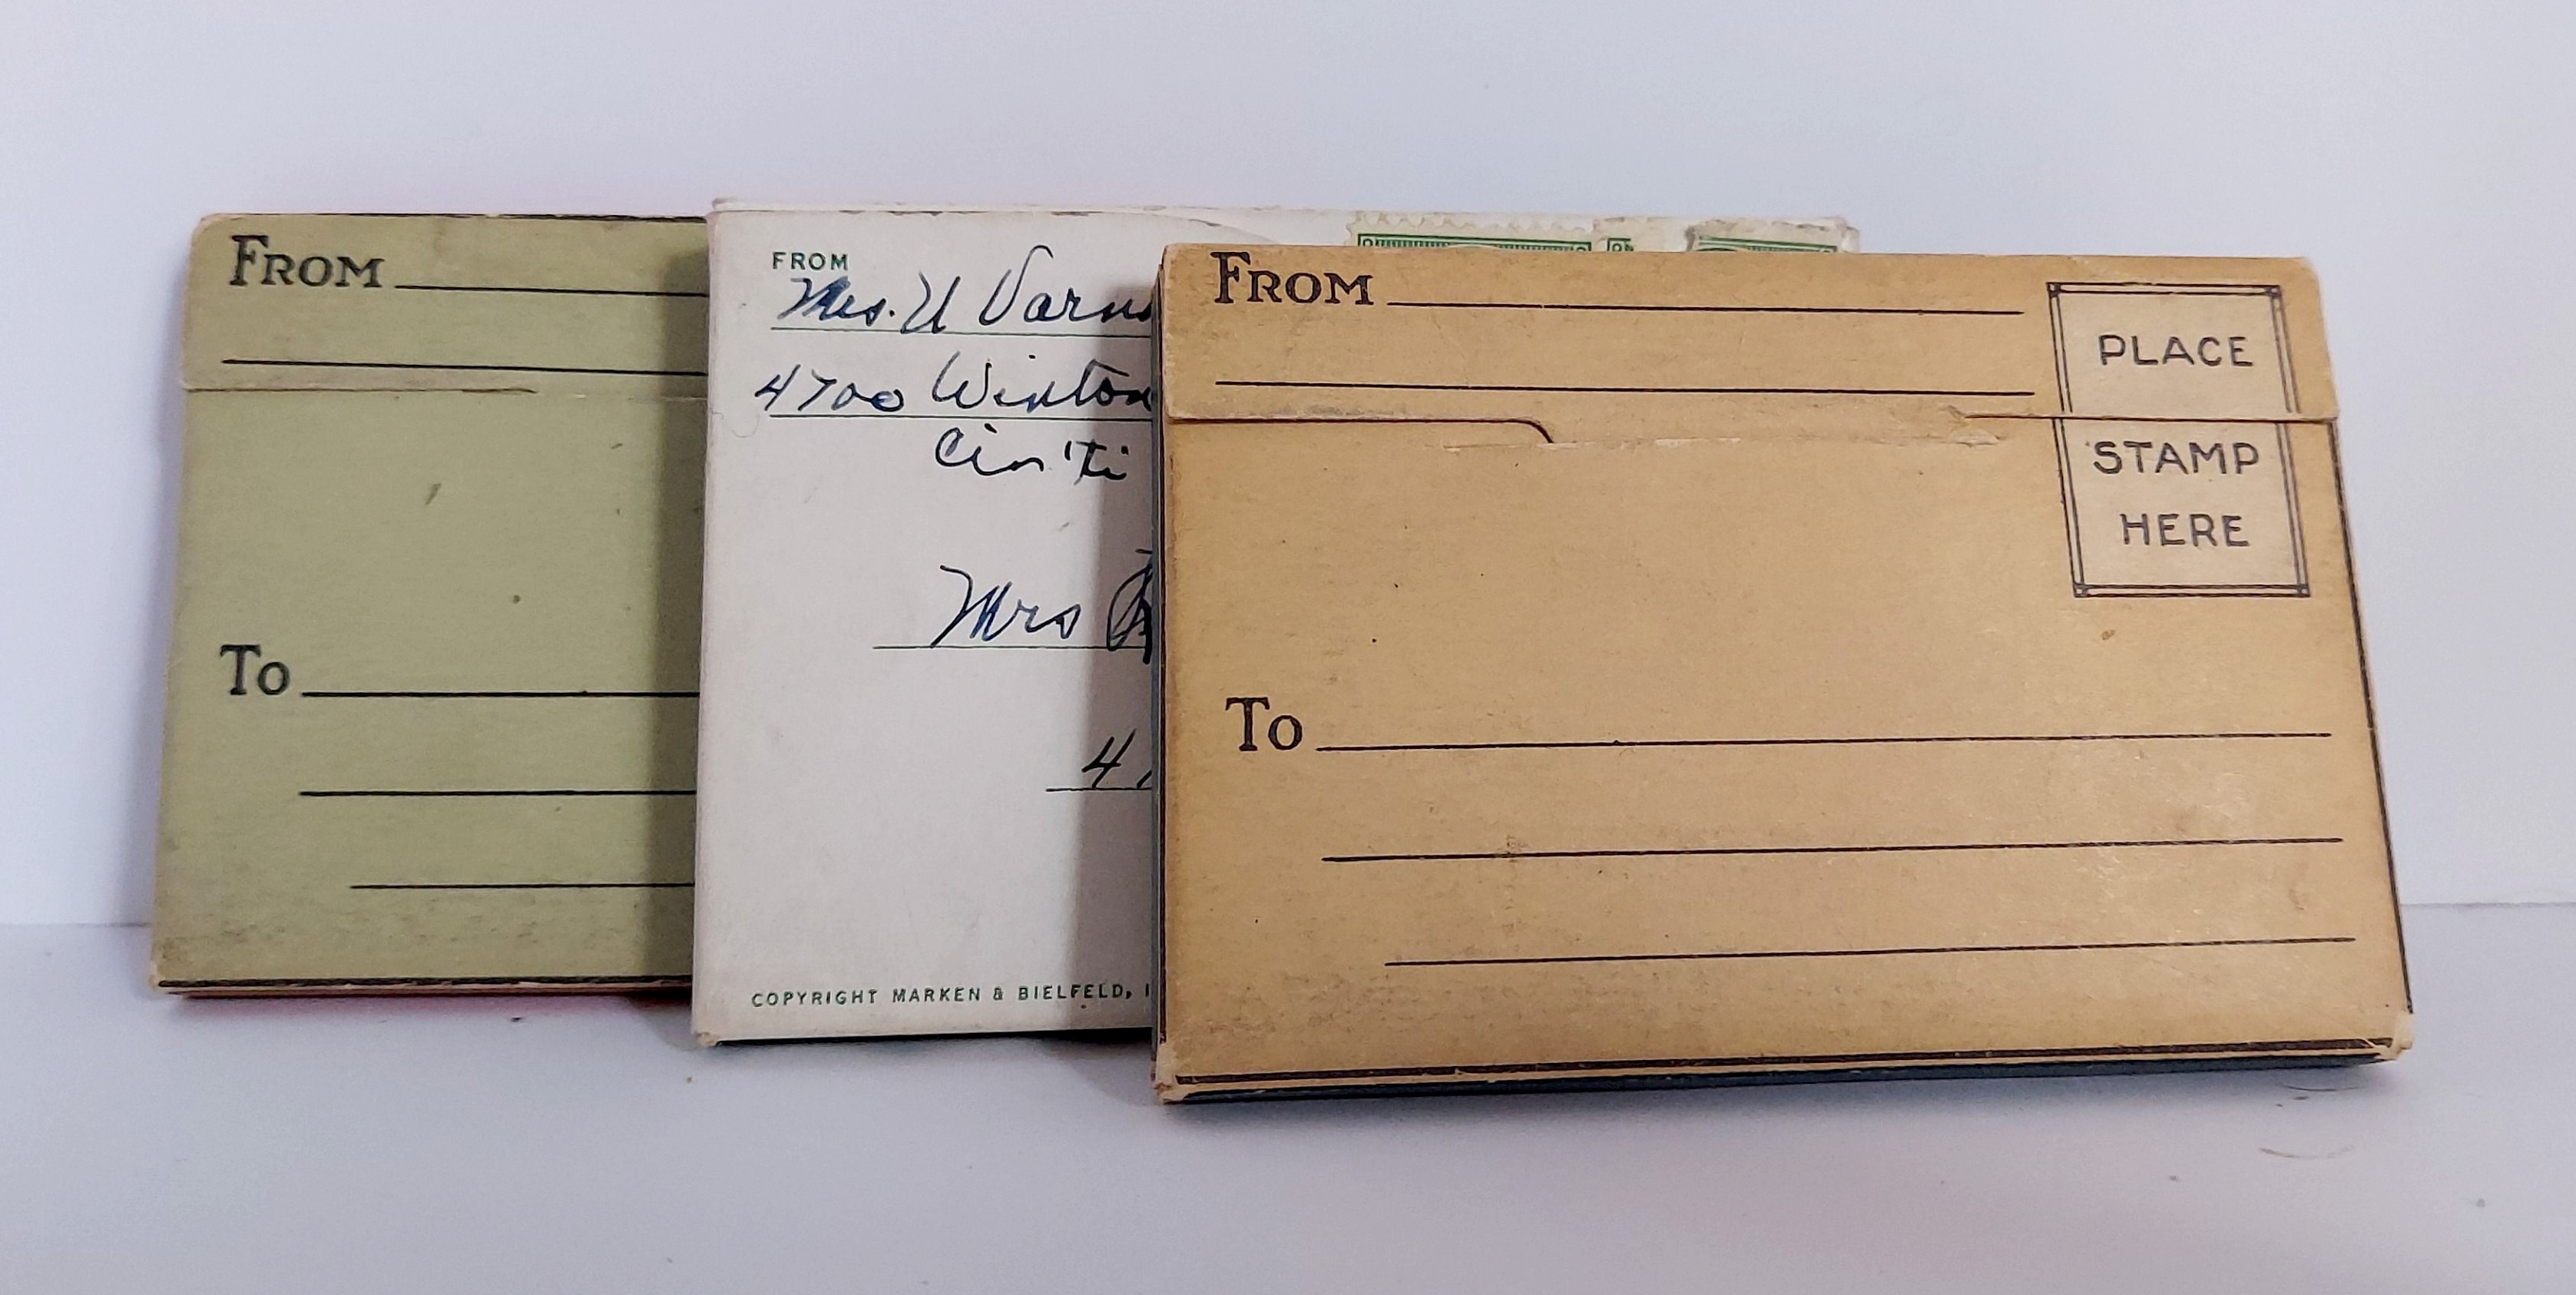 FROM
To
FROM
Mrs. U
4700 Winton
Cin'ti
Mrs
4
COPYRIGHT MARKEN & BIELFELD,
FROM
PLACE
STAMP
HERE
To